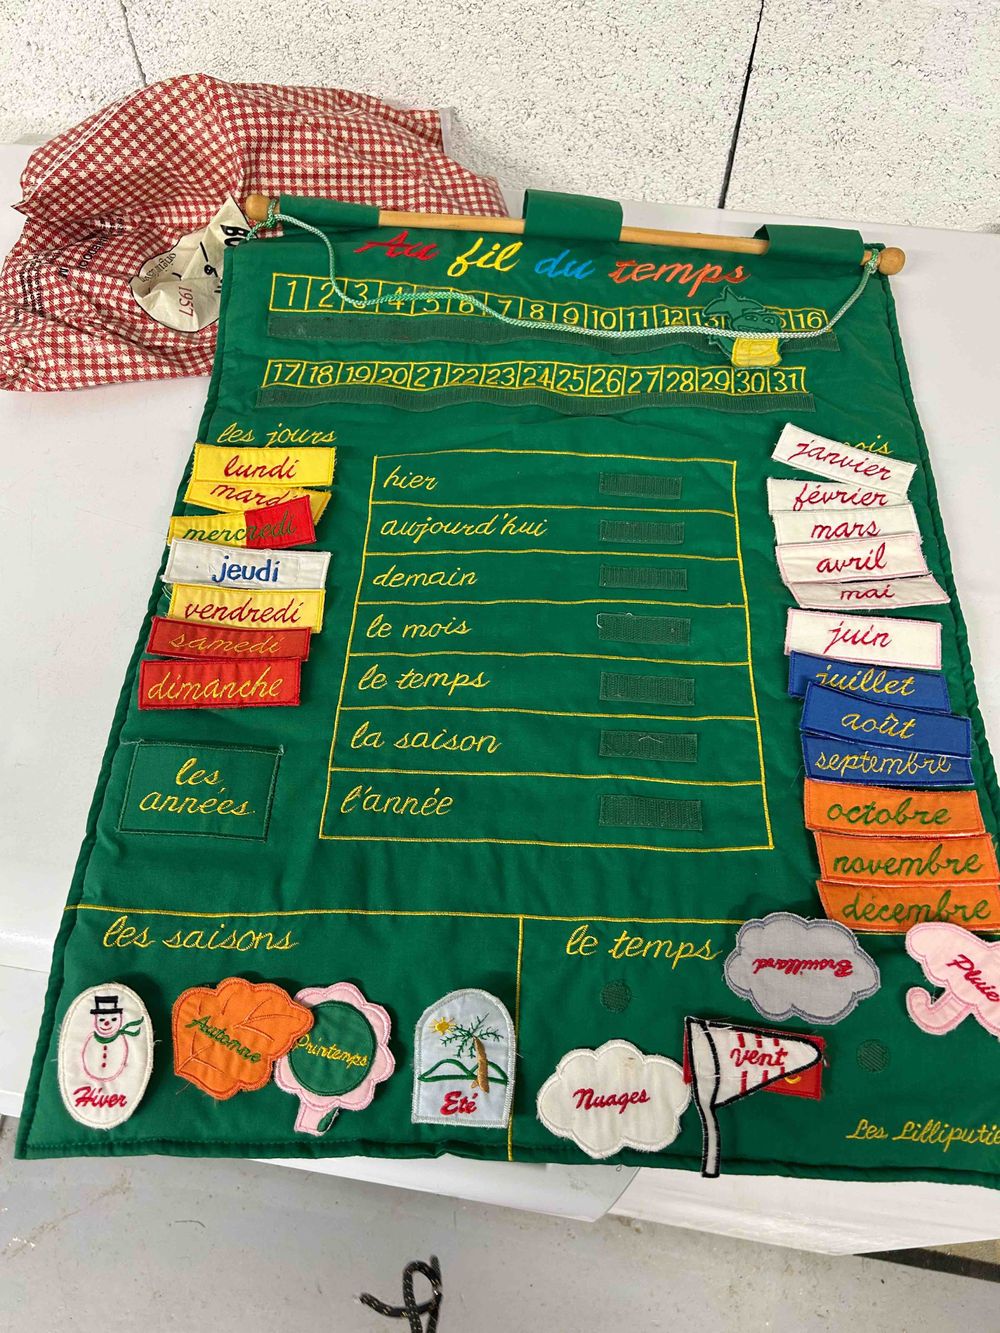 Au fil du temps
1 2 3 4 5 6 7 8 9 10 11 12 13 16
17 18 19 20 21 22 23 24 25 26 27 28 29 30 31
les jours
lundi
mardi
mercredi
jeudi
vendredi
samedi
dimanche
les années
hier
aujourd'hui
demain
le mois
le temps
la saison
l'année
janvier
février
mars
avril
mai
juin
juillet
août
septembre
octobre
novembre
décembre
les saisons
Hiver
Automne
Printemps
Eté
le temps
Brouillard
Pluie
Nuages
Vent
Les Lilliputie
1957